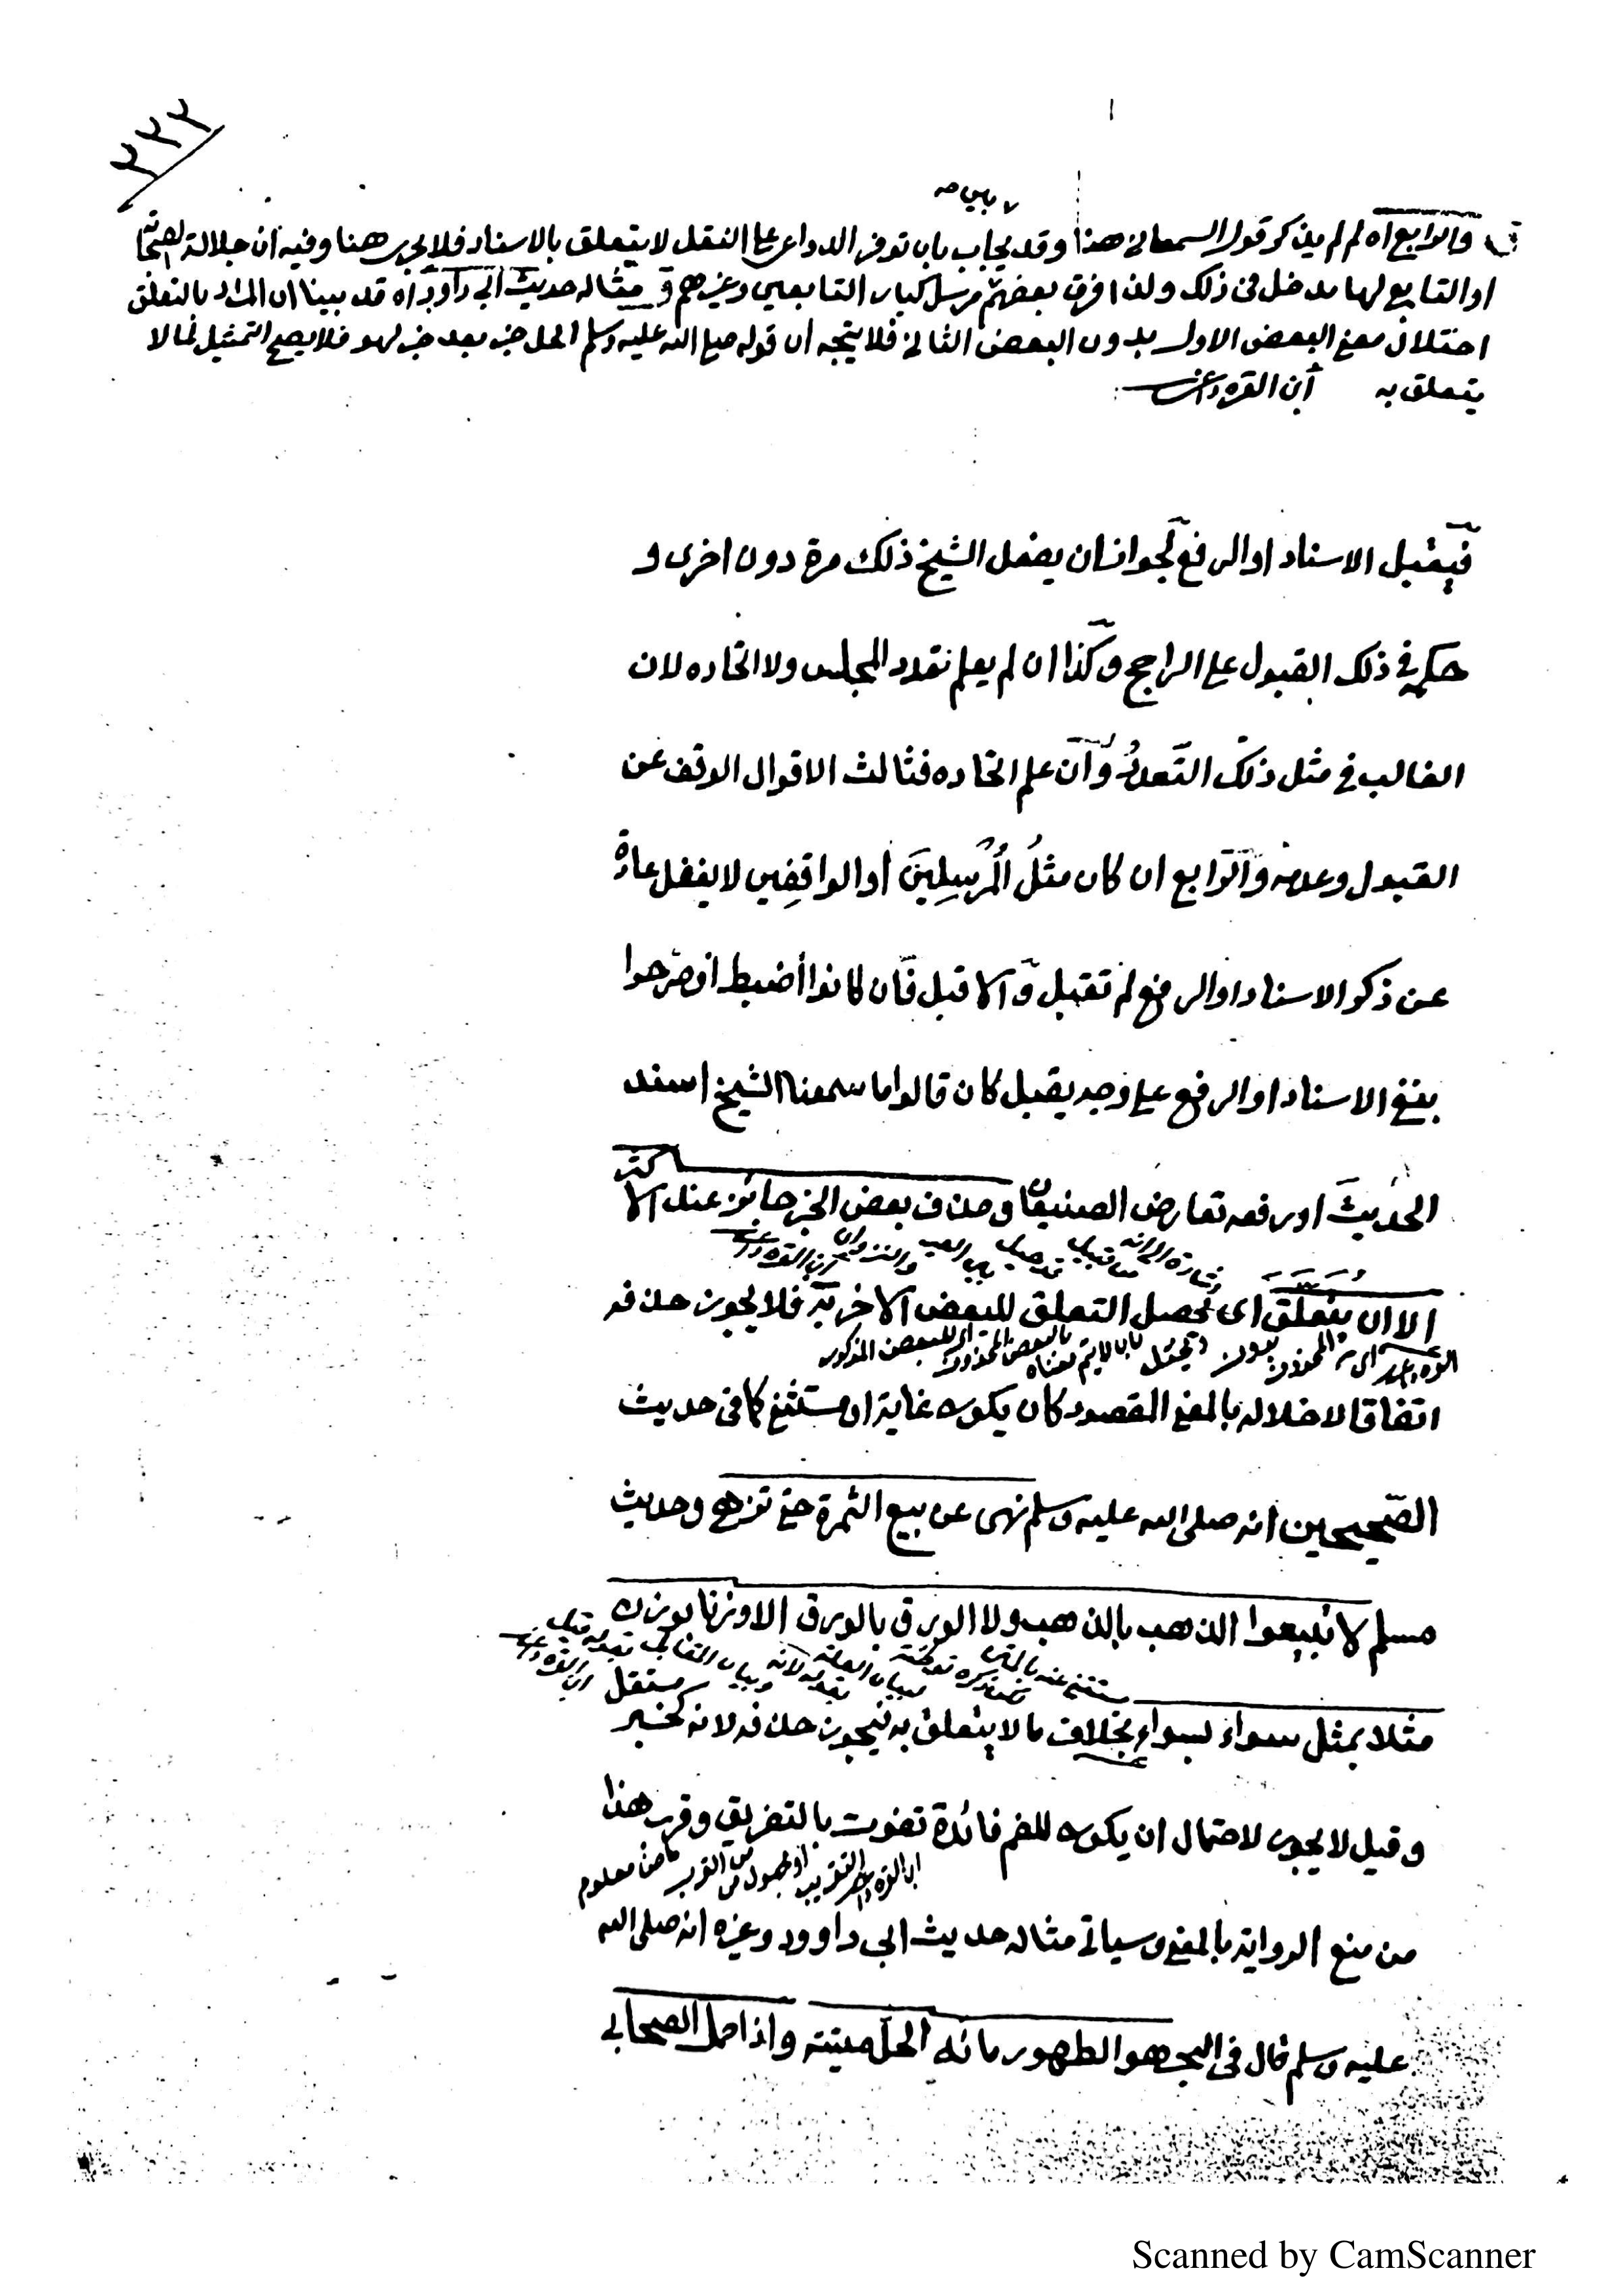 ٣٣٣
والرابع اه لم لم يذكر قول السمعاني هذا وقد يجاب بان توفر الدواعي على النقل لا يتعلق بالاسناد فلا يجرى هنا وفيه ان جلالة الصحابي
او التابع لها مدخل في ذلك ولذا فرق بعضهم مرسل كبار التابعين وغيرهم ق مثاله حديث ابي داود اه قد بينا ان المراد بالتعلق
اختلال معنى البعض الاول بدون البعض الثاني فلا يتجه ان قوله صلى الله عليه وسلم الحل خبر بعد خبر لهو فلا يصح التمثيل لما لا
يتعلق به ابن القره داغي
فيقبل الاسناد او الرفع لجواز ان يفعل الشيخ ذلك مرة دون اخرى و
حكمه في ذلك القبول على الراجح وكذا ان لم يعلم تعدد المجلس ولا اتحاده لان
الغالب في مثل ذلك التعدد وان علم اتحاده فثالث الاقوال الوقف عن
القبول وعدمه والرابع ان كان مثلُ المُرْسِلِينَ او الواقِفِين لا يغفل عادة
عن ذكر الاسناد او الرفع لم تقبل والا قبل فان كانوا أضبط او صرّحوا
بنفي الاسناد او الرفع على وجه يقبل كان قالوا ما سمعنا الشيخ اسند
الحديثَ او رفعه تعارض الصنيعان وحذف بعض الخبر جائز عند الاكثر
ابن القره داغي
الا ان يتعلق اى يحصل التعلق للبعض الآخر به فلا يجوز حذفه
القره داغي اى المحذوف بدون ويحتمل بان لا يتم معناه بالبعض المحذوف اى للبعض المذكور
اتفاقا لاخلاله بالمعنى المقصود كان يكون غاية او مستثنى كما في حديث
الصّحيحين انه صلى الله عليه وسلم نهى عن بيع الثمرة حتى تزهى وحديث
مسلم لا تبيعوا الذهب بالذهب ولا الورق بالورق الا وزنا بوزن
مثلا بمثل سواء بسواء بخلاف ما لا يتعلق به فيجوز حذفه لانه كخبر مستقل
ابن القره داغي
وقيل لا يجوز لاحتمال ان يكون للضم فائدة تفوت بالتفريق وقرب هذا
ابن القره داغي من التقريب او مجهول من القرب ماض معلوم
من منع الرواية بالمعنى وسياتي مثاله حديث ابي داوود وغيره انه صلى الله
عليه وسلم قال في البحر هو الطهور مائه الحل ميتته واذا حمل الصحابي
Scanned by CamScanner